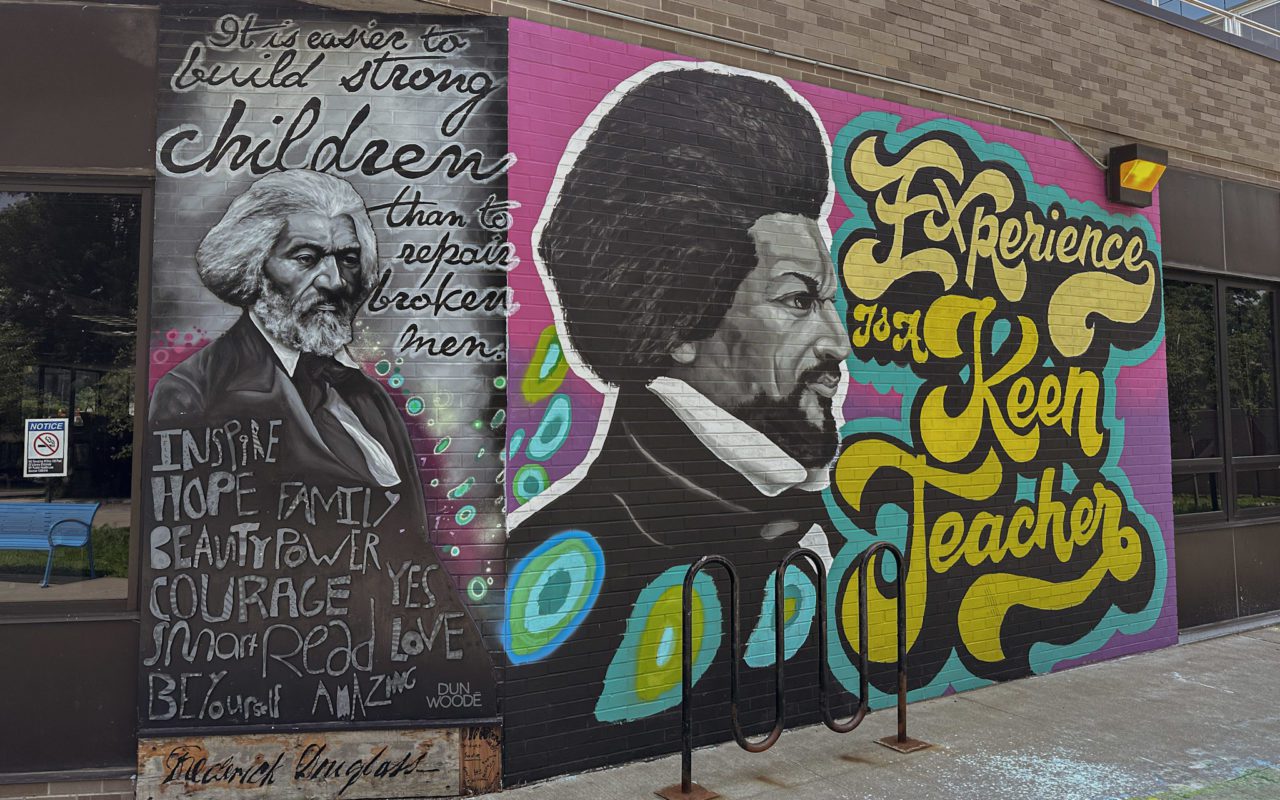 It is easier to
build strong
children
than to
repair
broken
men.
INSPIRE
HOPE FAMILY
BEAUTY POWER
COURAGE YES
SMart Read LOVE
BE YourSelf AMAZING
DUN
WOODĒ
Frederick Douglass
Experience
Is A Keen
Teacher
NOTICE